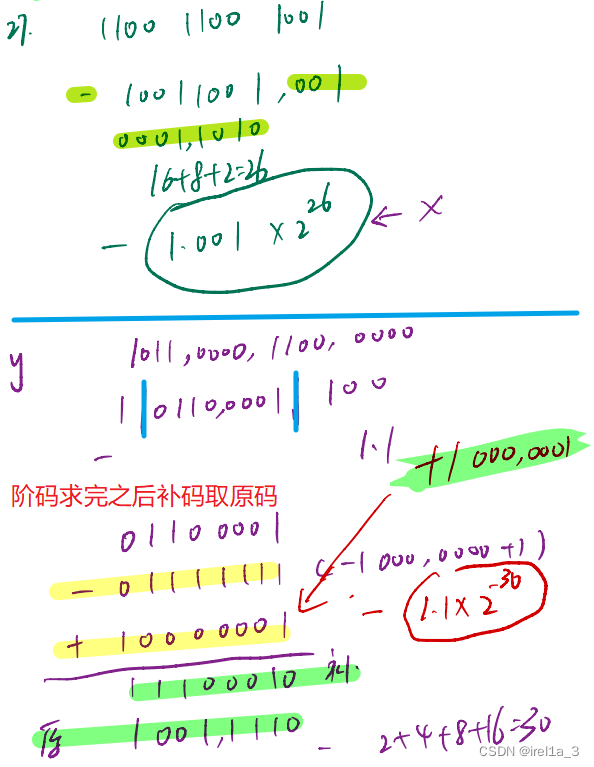 27. 1100 1100 1001
- 10011001,001
0001,1010
16+8+2=26
- 1.001 × 2^26 ← x
y 1011,0000,1100,0000
1 | 0110,0001 | 100
- 1.1 +1000,0001
阶码求完之后补码取原码
01100001
(-1000,0000+1)
- 01111111
- 1.1×2^-30
+ 10000001
11100010 补.
原 1001,1110
- 2+4+8+16=30
CSDN @irel1a_3